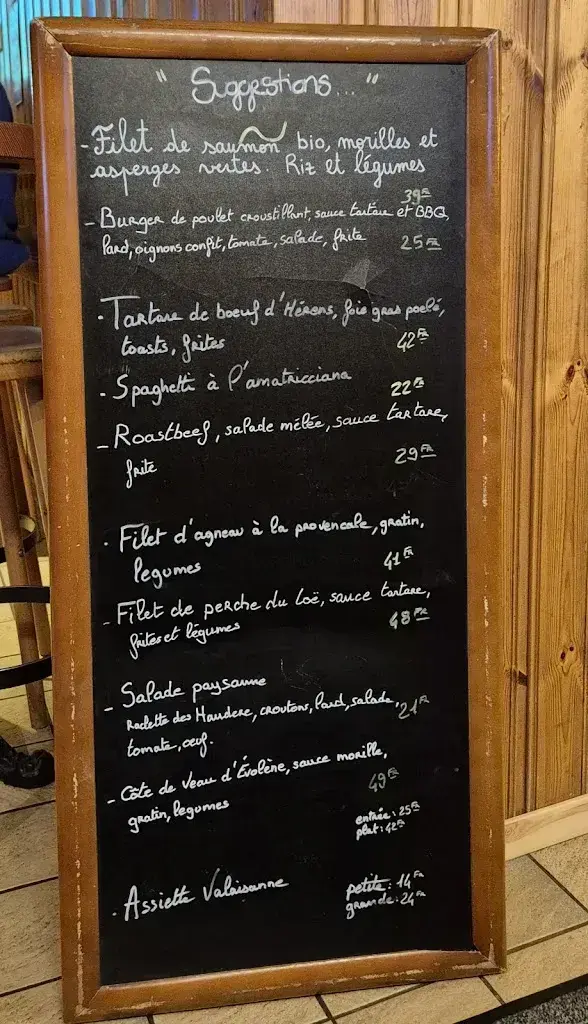 " Suggestions... "
- Filet de saumon bio, morilles et
asperges vertes. Riz et légumes
39 Fr
- Burger de poulet croustillant, sauce tartare et BBQ,
lard, oignons confit, tomate, salade, frite 25 Fr
· Tartare de boeuf d'Hérens, foie gras poelé,
toasts, frites 42 Fr
· Spaghetti à l'amatricciana 22 Fr
- Roastbeef, salade mêlée, sauce tartare,
frite 29 Fr
· Filet d'agneau à la provencale, gratin,
legumes 41 Fr
- Filet de perche du Loë, sauce tartare,
frites et légumes 48 Fr
- Salade paysanne
Raclette des Haudere, croutons, lard, salade, 21 Fr
tomate, oeuf.
- Côte de Veau d'Évolène, sauce morille,
gratin, legumes 49 Fr
entrée: 25 Fr
plat: 42 Fr
· Assiette Valaisanne petite: 14 Fr
grande: 24 Fr